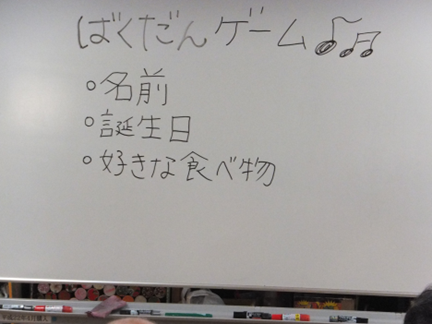 ばくだんゲーム♪♫
○名前
○誕生日
○好きな食べ物